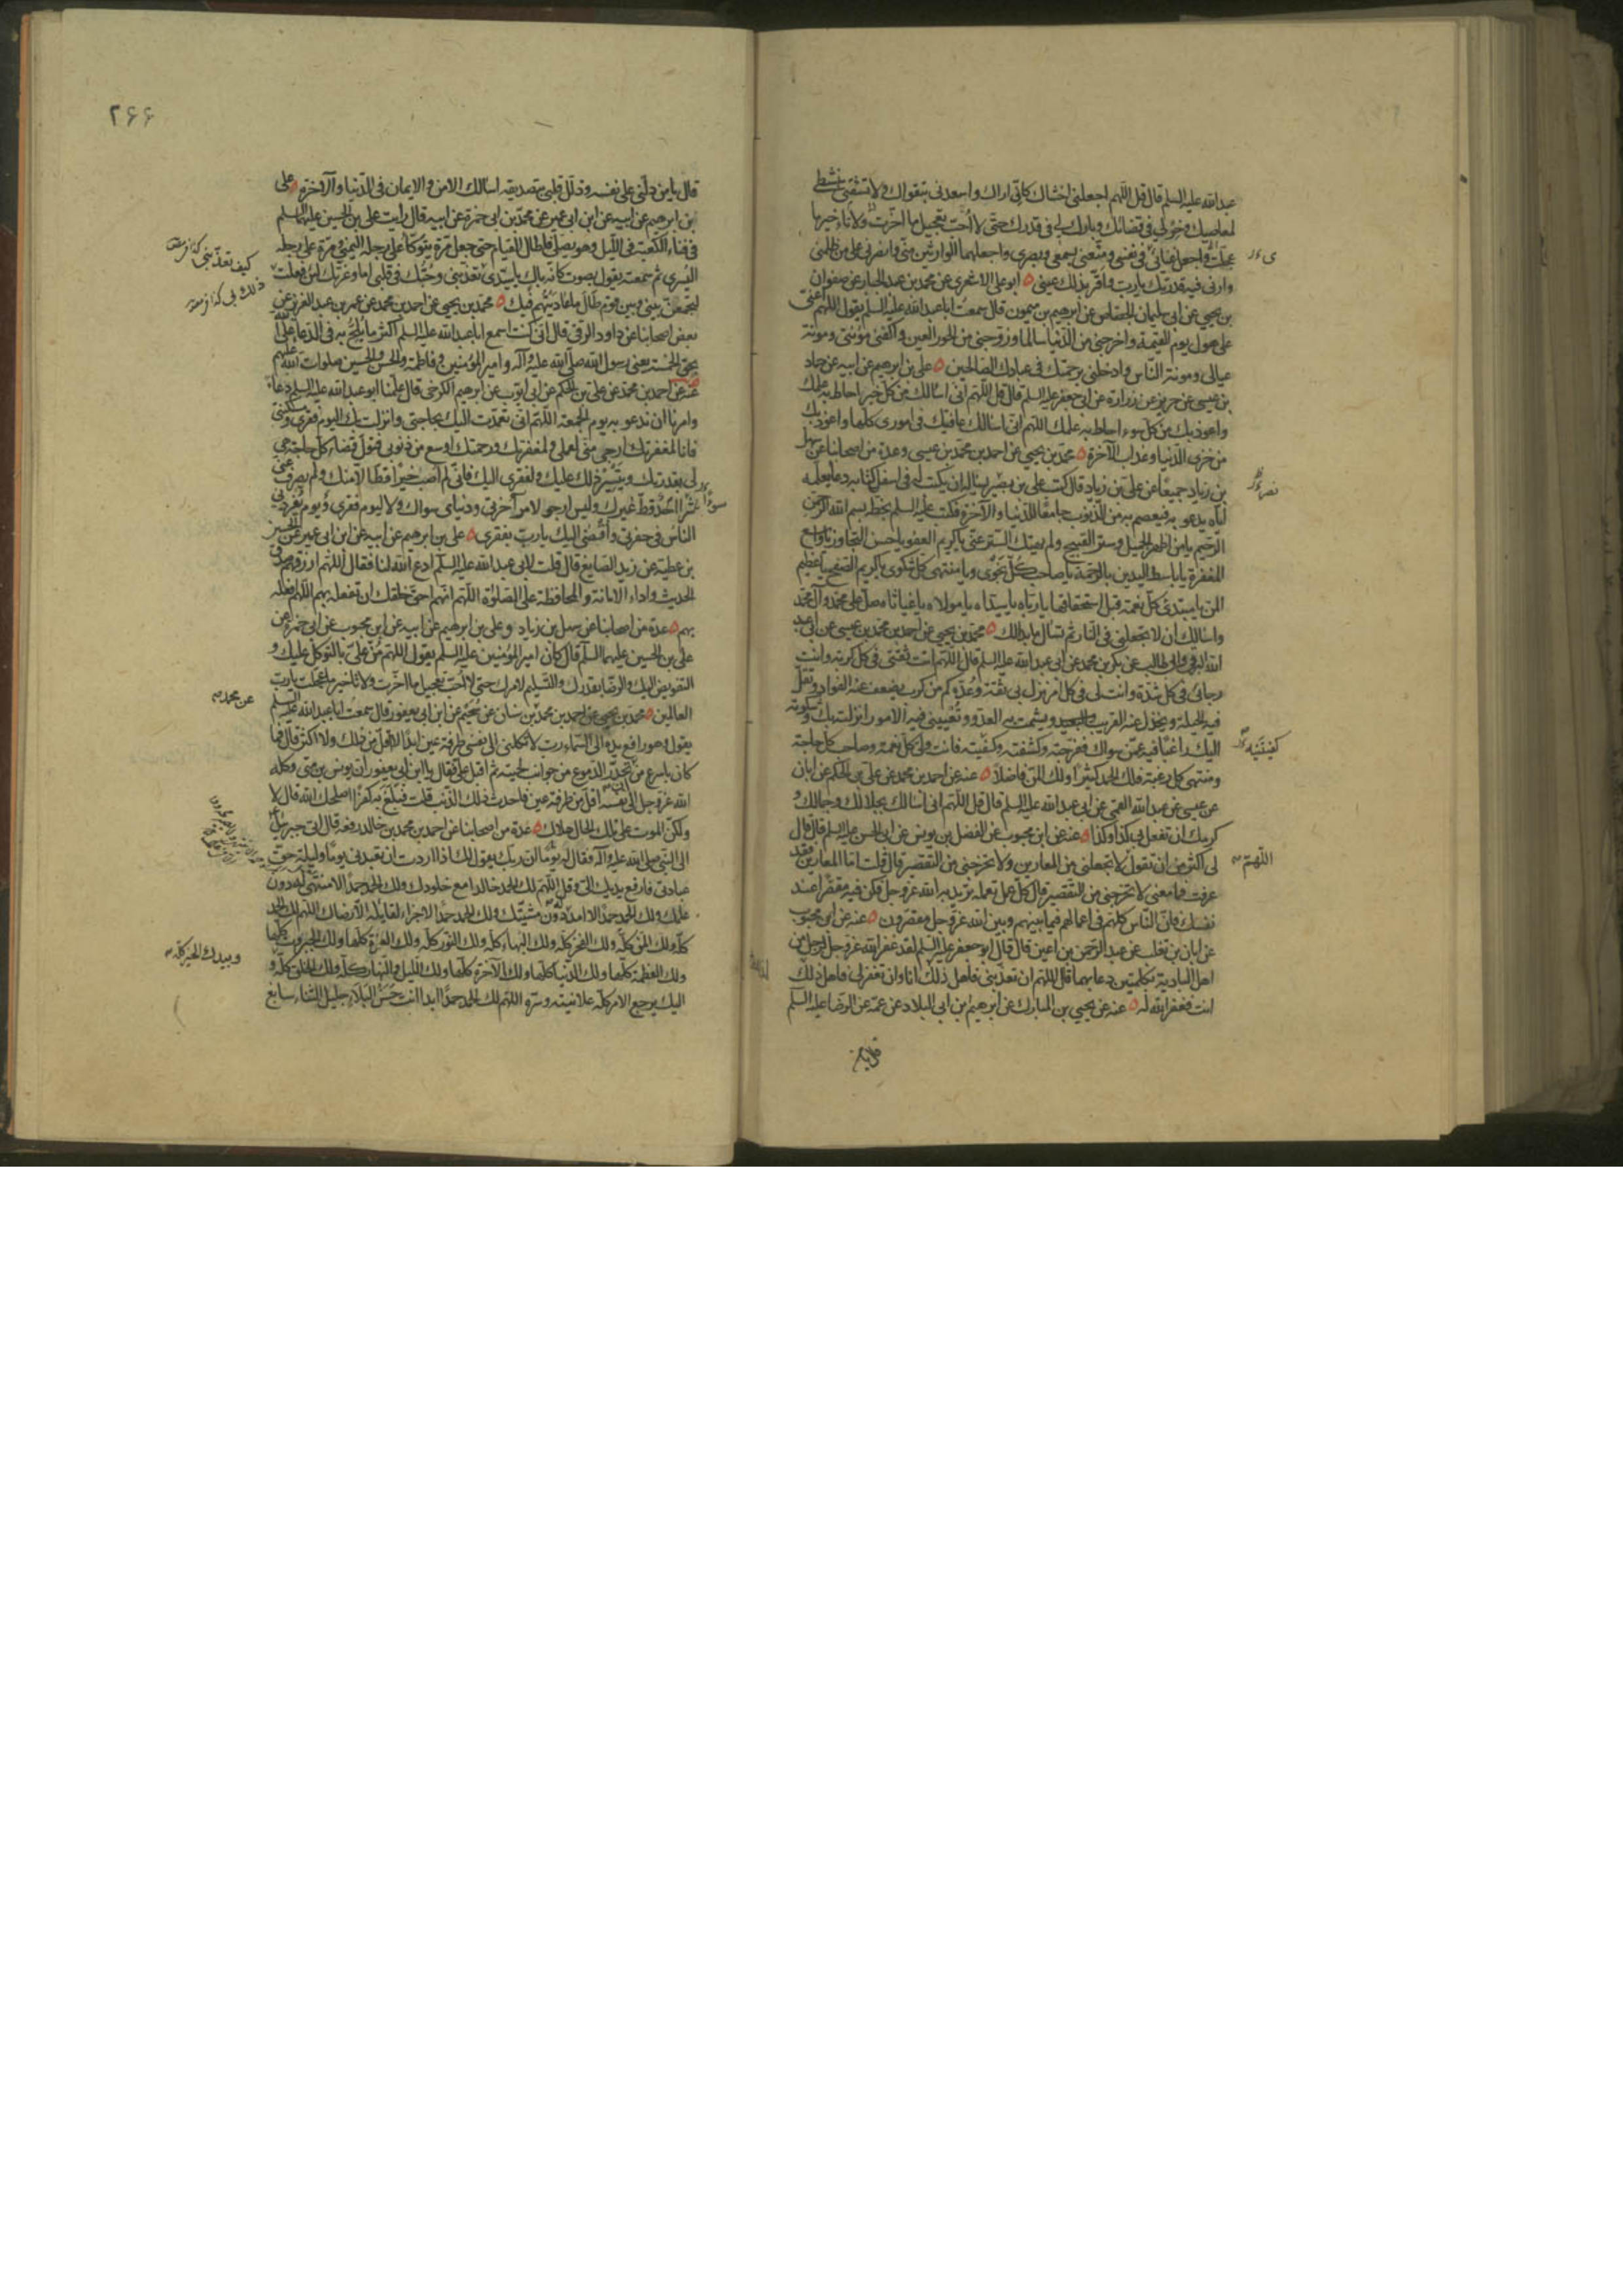 عبدالله عليه السلم قال قل اللهم اجعلني اخشاك كاني اراك واسعدني بتقواك ولا تشقني بنشطي
لمعاصيك وخر لي في قضائك وبارك لي في قدرك حتى لا احب تعجيل ما اخرت ولا تاخير ما
عجلت واجعل غنائي في نفسي ومتعني بسمعي وبصري واجعلهما الوارثين مني وانصرني على من ظلمني
وارني فيه قدرتك يا رب واقر بذلك عيني ابو علي الاشعري عن محمد بن عبد الجبار عن صفوان
بن يحيى عن ابي سليمان الجصاص عن ابرهيم بن ميمون قال سمعت ابا عبد الله عليه السلم يقول اللهم اعني
على هول يوم القيمة واخرجني من الدنيا سالما وزوجني من الحور العين واكفني مؤنتي ومؤنة
عيالي ومونة الناس وادخلني برحمتك في عبادك الصالحين علي بن ابرهيم عن ابيه عن حماد
بن عيسى عن حريز عن زرارة عن ابي جعفر عليه السلم قال قل اللهم اني اسالك من كل خير احاط به علمك
واعوذ بك من كل سوء احاط به علمك اللهم اني اسالك عافيتك في اموري كلها واعوذ بك
من خزي الدنيا وعذاب الآخرة محمد بن يحيى عن احمد بن محمد بن عيسى وعدة من اصحابنا عن سهل
بن زياد جميعا عن علي بن زياد قال كتب علي بن بصير يساله ان يكتب له في اسفل كتابه دعا يعلمه
اياه يدعو به فيعصم به من الذنوب جامعا للدنيا والآخرة فكتب عليه السلم بخطه بسم الله الرحمن
الرحيم يا من اظهر الجميل وستر القبيح ولم يهتك الستر عني يا كريم العفو يا حسن التجاوز يا واسع
المغفرة يا باسط اليدين بالرحمة يا صاحب كل نجوى ويا منتهى كل شكوى يا كريم الصفح يا عظيم
المن يا مبتدئ كل نعمة قبل استحقاقها يا رباه يا سيداه يا مولاه يا غياثاه صل على محمد وآل محمد
واسالك ان لا تجعلني في النار ثم تسال ما بدا لك محمد بن يحيى عن احمد بن محمد بن عيسى عن ابي عبد
الله البرقي وابي طالب عن بكر بن محمد عن ابي عبد الله عليه السلم قال اللهم انت ثقتي في كل كربة وانت
رجائي في كل شدة وانت لي في كل امر نزل بي ثقة وعدة كم من كرب يضعف عنه الفواد وتقل
فيه الحيلة ويخذل عنه القريب والبعيد ويشمت به العدو وتعييني فيه الامور انزلته بك وشكوته
اليك راغبا فيه عمن سواك ففرجته وكشفته وكفيته فانت ولي كل نعمة وصاحب كل حاجة
ومنتهى كل رغبة فلك الحمد كثيرا ولك المن فاضلا عنه عن احمد بن محمد عن علي بن الحكم عن ابان
عن عيسى عن عبد الله القمي عن ابي عبد الله عليه السلم قال قل اللهم اني اسالك بجلالك وجمالك و
كرمك ان تفعل بي كذا وكذا عنه عن ابن محبوب عن الفضل بن يونس عن ابي الحسن عليه السلم قال قال
لي اكثر من ان تقول لا تجعلني من المعارين ولا تخرجني من التقصير قال قلت اما المعارين فقد
عرفت فما معنى لا تخرجني من التقصير قال كل عمل تعمله تريد به الله عز وجل فكن فيه مقصرا عند
نفسك فان الناس كلهم في اعمالهم فيما بينهم وبين الله عز وجل مقصرون عنه عن ابن محبوب
عن ابان بن تغلب عن عبد الرحمن بن اعين قال قال ابو جعفر عليه السلم لقد غفر الله عز وجل لرجل من
اهل البادية بكلمتين دعا بهما قال اللهم ان تعذبني فاهل ذلك انا وان تغفر لي فاهل ذلك
انت فغفر الله له عنه عن يحيى بن المبارك عن ابرهيم بن ابي البلاد عن عمه عن الرضا عليه السلم
قال يا من
نصر
كفيتنيه
اللهم
٢٦٦
قال يا من دلني على نفسه وذلل قلبي بتصديقه اسالك الامن والايمان في الدنيا والآخرة علي
بن ابرهيم عن ابيه عن ابن ابي عمير عن محمد بن ابي حمزة عن ابيه قال رايت علي بن الحسين عليهما السلم
في فناء الكعبة في الليل وهو يصلي فاطال القيام حتى جعل مرة يتوكأ على رجله اليمنى ومرة على رجله
اليسرى ثم سمعته يقول بصوت كانه باك يا سيدي تعذبني وحبك في قلبي اما وعزتك لئن فعلت
لتجمعن بيني وبين قوم طال ما عاديتهم فيك محمد بن يحيى عن احمد بن محمد عن عمر بن عبد العزيز عن
بعض اصحابنا عن داود الرقي قال اني كنت اسمع ابا عبد الله عليه السلم اكثر ما يلح به في الدعا على الله
بحق الخمسة يعني رسول الله صلى الله عليه وآله وامير المؤمنين وفاطمة والحسن والحسين صلوات الله عليهم
عنه عن احمد بن محمد عن علي بن الحكم عن ابي ايوب عن ابرهيم الكرخي قال علمنا ابو عبد الله عليه السلم دعاء
وامرنا ان ندعو به يوم الجمعة اللهم اني تعمدت اليك بحاجتي وانزلت بك اليوم فقري ومسكنتي
فانا لمغفرتك ارجى مني لعملي ولمغفرتك ورحمتك اوسع من ذنوبي فتول قضاء كل حاجة هي
لي بقدرتك وبتيسير ذلك عليك ولفقري اليك فاني لم اصب خيرا قط الا منك ولم يصرف عني
شرا قط غيرك وليس ارجو لامر آخرتي ودنياي سواك ولا ليوم فقري ويوم يفردني
الناس في حفرتي وافضي اليك يا رب بفقري علي بن ابرهيم عن ابيه عن ابن ابي عمير عن الحسين
بن عطية عن زيد الصايغ قال قلت لابي عبد الله عليه السلم ادع الله لنا فقال اللهم ارزقهم صدق
الحديث واداء الامانة والمحافظة على الصلوة اللهم انهم احق خلقك ان تفعله بهم اللهم افعله
بهم عدة من اصحابنا عن سهل بن زياد وعلي بن ابرهيم عن ابيه عن ابن محبوب عن ابي حمزة عن
علي بن الحسين عليهما السلم قال كان امير المؤمنين عليه السلم يقول اللهم من علي بالتوكل عليك و
التفويض اليك والرضا بقدرك والتسليم لامرك حتى لا احب تعجيل ما اخرت ولا تاخير ما عجلت يا رب
العالمين محمد بن يحيى عن احمد بن محمد بن سنان عن سجيم عن ابن ابي يعفور قال سمعت ابا عبد الله عليه السلم
يقول وهو رافع يده الى السماء رب لا تكلني الى نفسي طرفة عين ابدا لا اقل من ذلك ولا اكثر قال فما
كان باسرع من تحدر الدموع من جوانب لحيته ثم اقبل علي فقال يا ابن ابي يعفور ان يونس بن متى وكله
الله عز وجل الى نفسه اقل من طرفة عين فاحدث ذلك الذنب قلت فبلغ به كفرا اصلحك الله قال لا
ولكن الموت على تلك الحال هلاك عدة من اصحابنا عن احمد بن محمد بن خالد رفعه قال اتى جبرئيل
الى النبي صلى الله عليه وآله فقال له ان ربك يقول لك اذا اردت ان تعبدني يوما وليلة حق
عبادتي فارفع يديك الي وقل اللهم لك الحمد خالدا مع خلودك ولك الحمد حمدا لا منتهى له دون
علمك ولك الحمد حمدا لا امد له دون مشيتك ولك الحمد حمدا لا جزاء لقائله الا رضاك اللهم لك الحمد
كله ولك المن كله ولك الفخر كله ولك البهاء كله ولك النور كله ولك العزة كلها ولك الجبروت كلها
ولك العظمة كلها ولك الدنيا كلها ولك الآخرة كلها ولك الليل والنهار كله ولك الخلق كله و
اليك يرجع الامر كله علانيته وسره اللهم لك الحمد حمدا ابدا انت حسن البلاء جليل الثناء سابغ
كيف تعذبني
ذلك بي
سوءا
عن محمد
وبيدك الخير كله